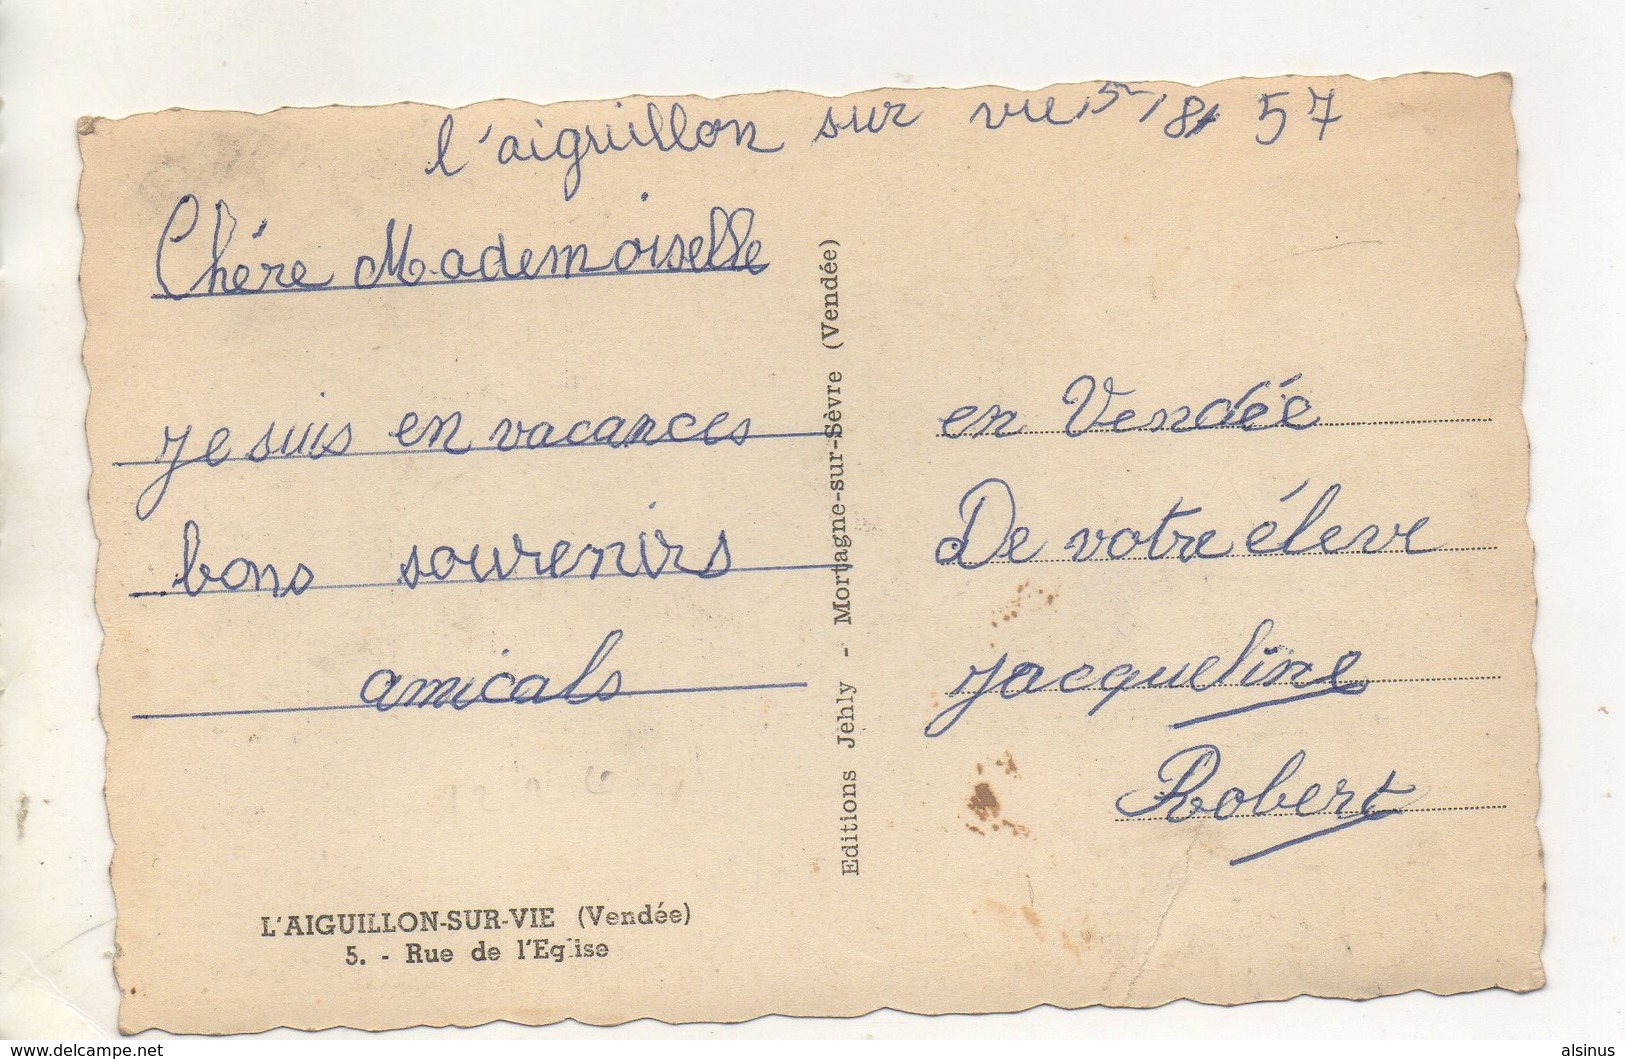 l'aiguillon sur vie 5/8/57
Chére Mademoiselle
je suis en vacances
bons souvenirs
amicals
en Vendée
De votre éleve
Jacqueline
Robert
Editions Jehly - Mortagne-sur-Sèvre (Vendée)
L'AIGUILLON-SUR-VIE (Vendée)
5. - Rue de l'Eglise
www.delcampe.net
alsinus